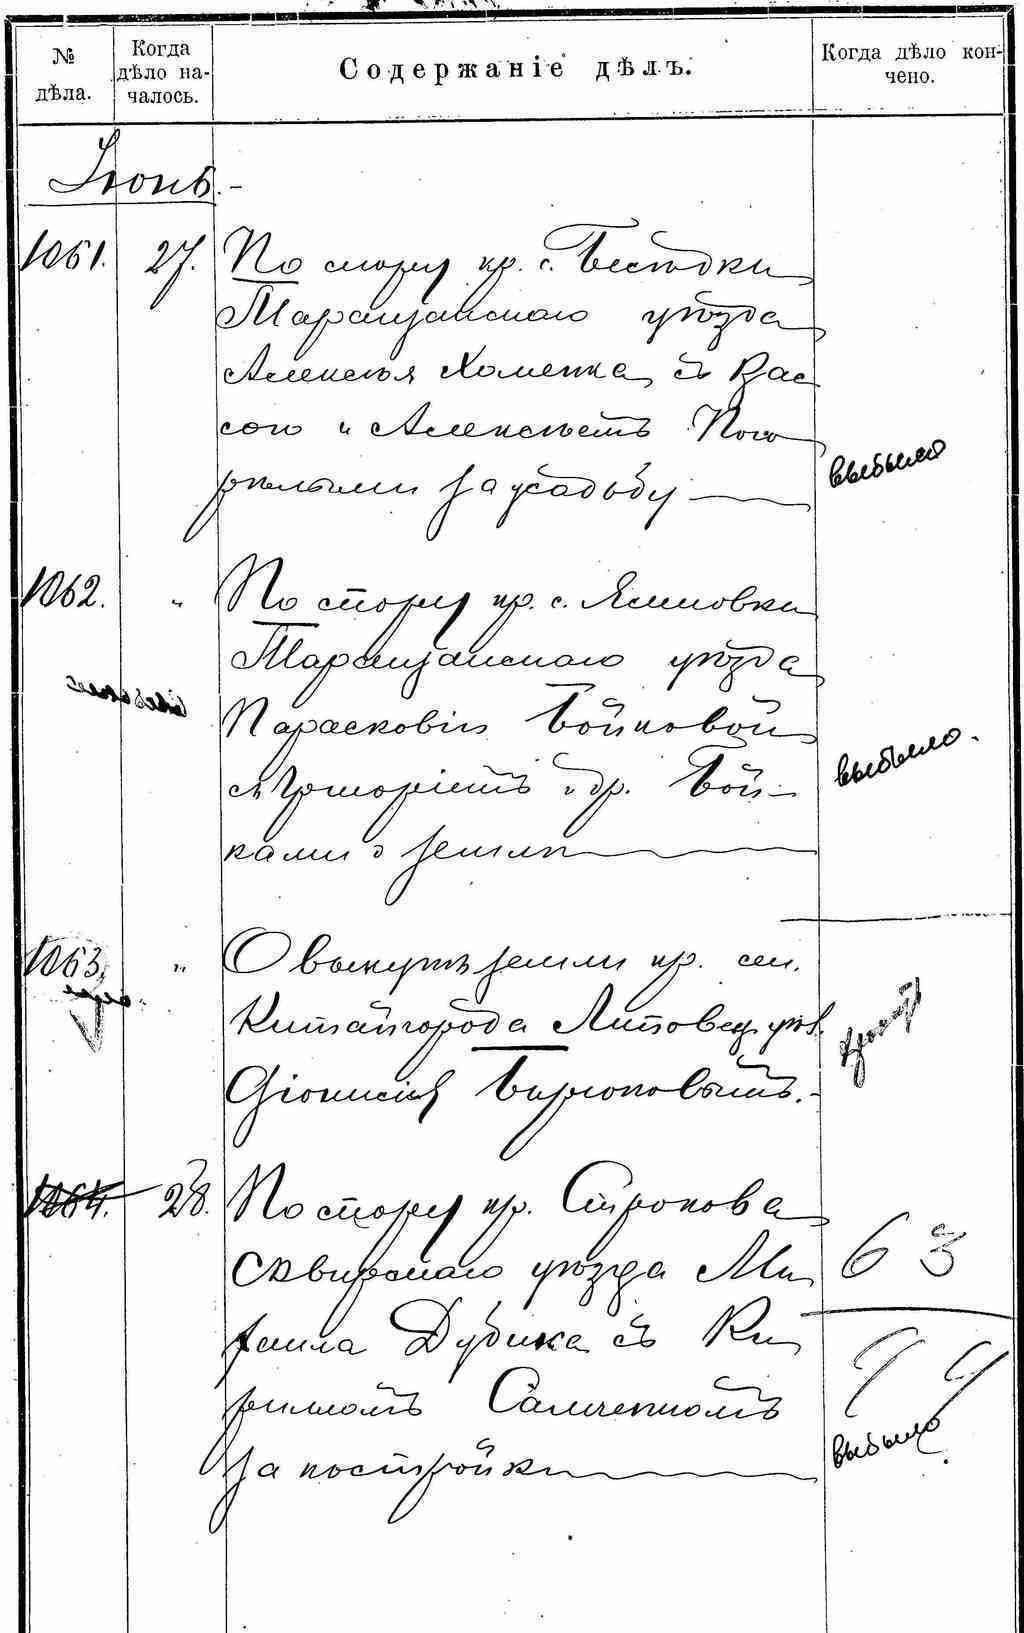 № дѣла.
Когда дѣло началось.
Содержаніе дѣлъ.
Когда дѣло кончено.
Іюнь.-
1061. 27. По спору кр. с. Бесѣдки
Таращанскаго уѣзда
Алексѣя Хоменка съ Вас
сою и Алексѣемъ Пого
рѣлыми за усадьбу
выбыло
1062. " По спору кр. с. Ясиновки
Таращанскаго уѣзда
Парасковіи Бойковой
съ Григоріемъ и др. Бой-
ками о землѣ
выбыло.
1063. " О выкупѣ земли кр. сел.
Китайгорода Липовец. уѣз.
Діонисія Бирюковымъ.-
1064. 28. По спору кр. Строкова
Сквирскаго уѣзда Ми
хаила Дубика съ Ки
рилломъ Савченкомъ
за постройки
63
94
выбыло.